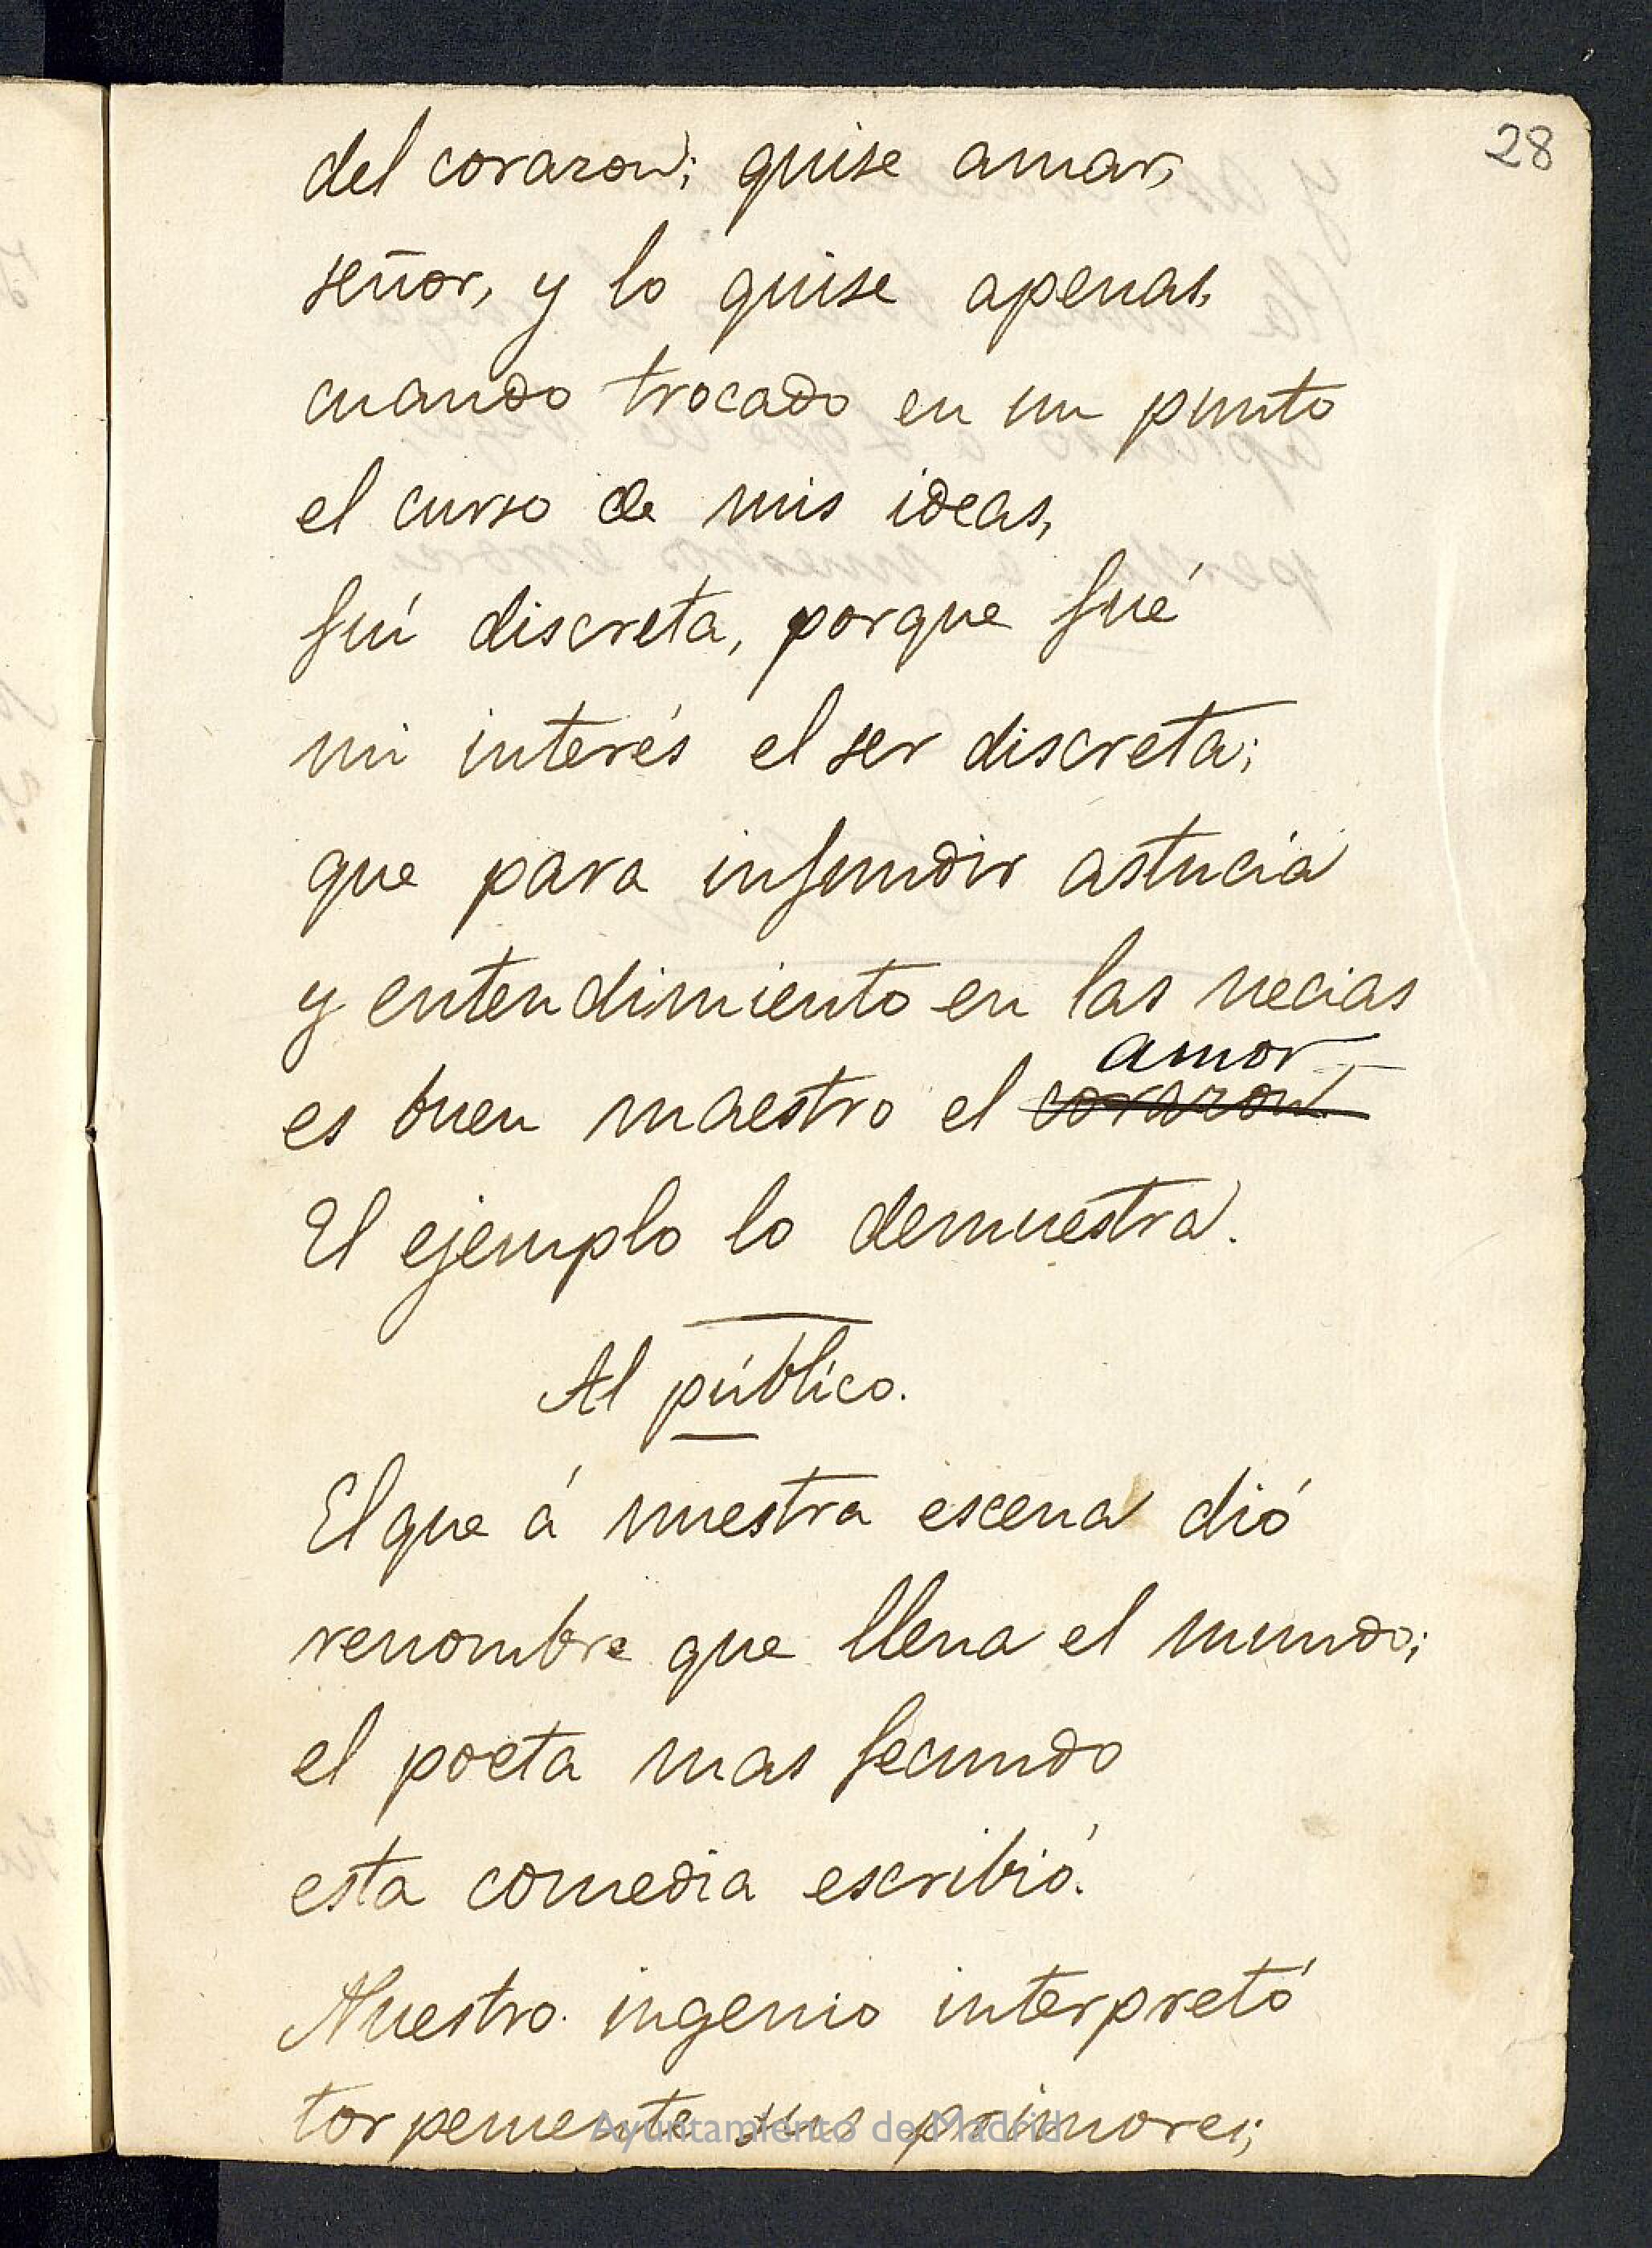 28
del corazon; quise amar,
señor, y lo quise apenas,
cuando trocado en un punto
el curso de mis ideas,
fuí discreta, porque fué
mi interés el ser discreta;
que para infundir astucia
y entendimiento en las necias
amor
es buen maestro el corazon.
El ejemplo lo demuestra.
Al público.
El que á nuestra escena dió
renombre que llena el mundo;
el poeta mas fecundo
esta comedia escribió.
Nuestro ingenio interpretó
torpemente sus primores;
Ayuntamiento de Madrid